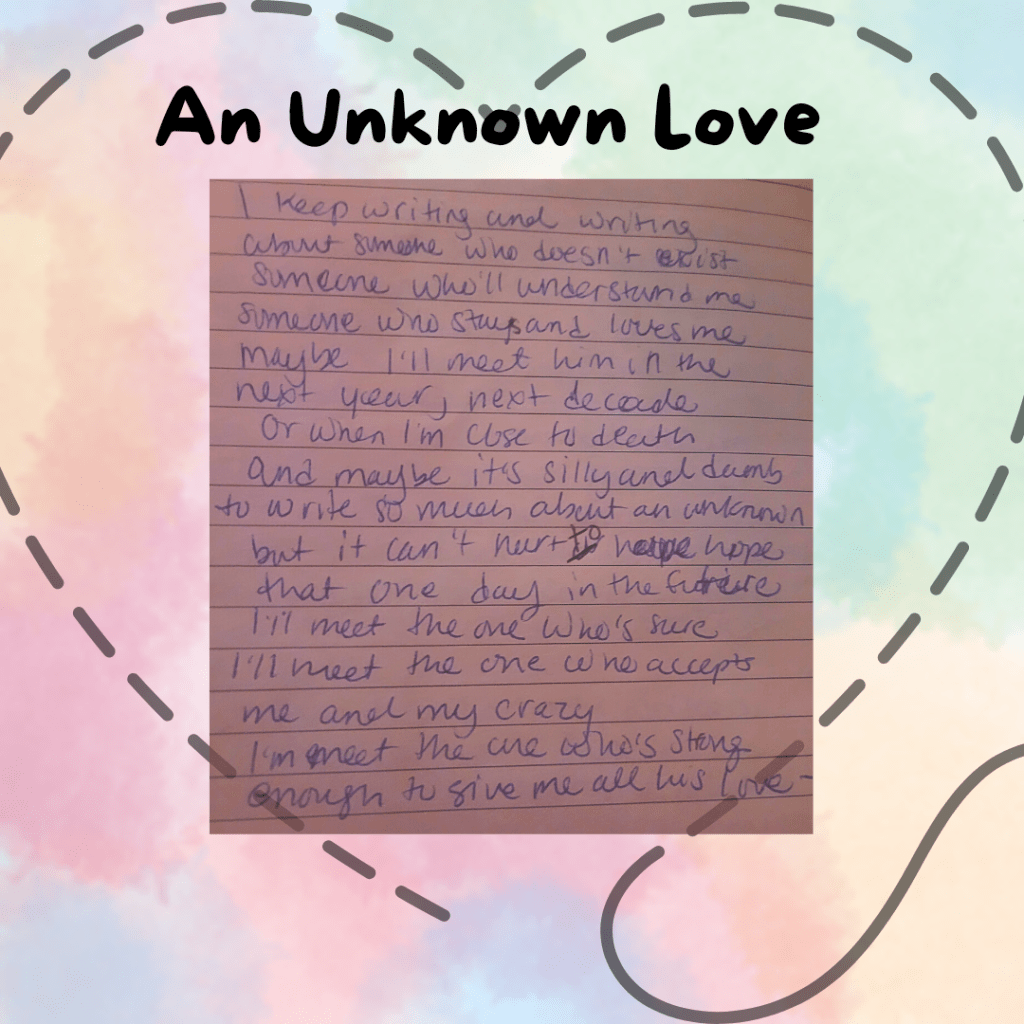 An Unknown Love
I keep writing and writing
about someone who doesn't exist
someone who'll understand me
someone who stays and loves me
maybe I'll meet him in the
next year, next decade
Or when I'm close to death
and maybe it's silly and dumb
to write so much about an unknown
but it can't hurt to hope
that one day in the future
I'll meet the one who's sure
I'll meet the one who accepts
me and my crazy
I'm meet the one who's strong
enough to give me all his love-